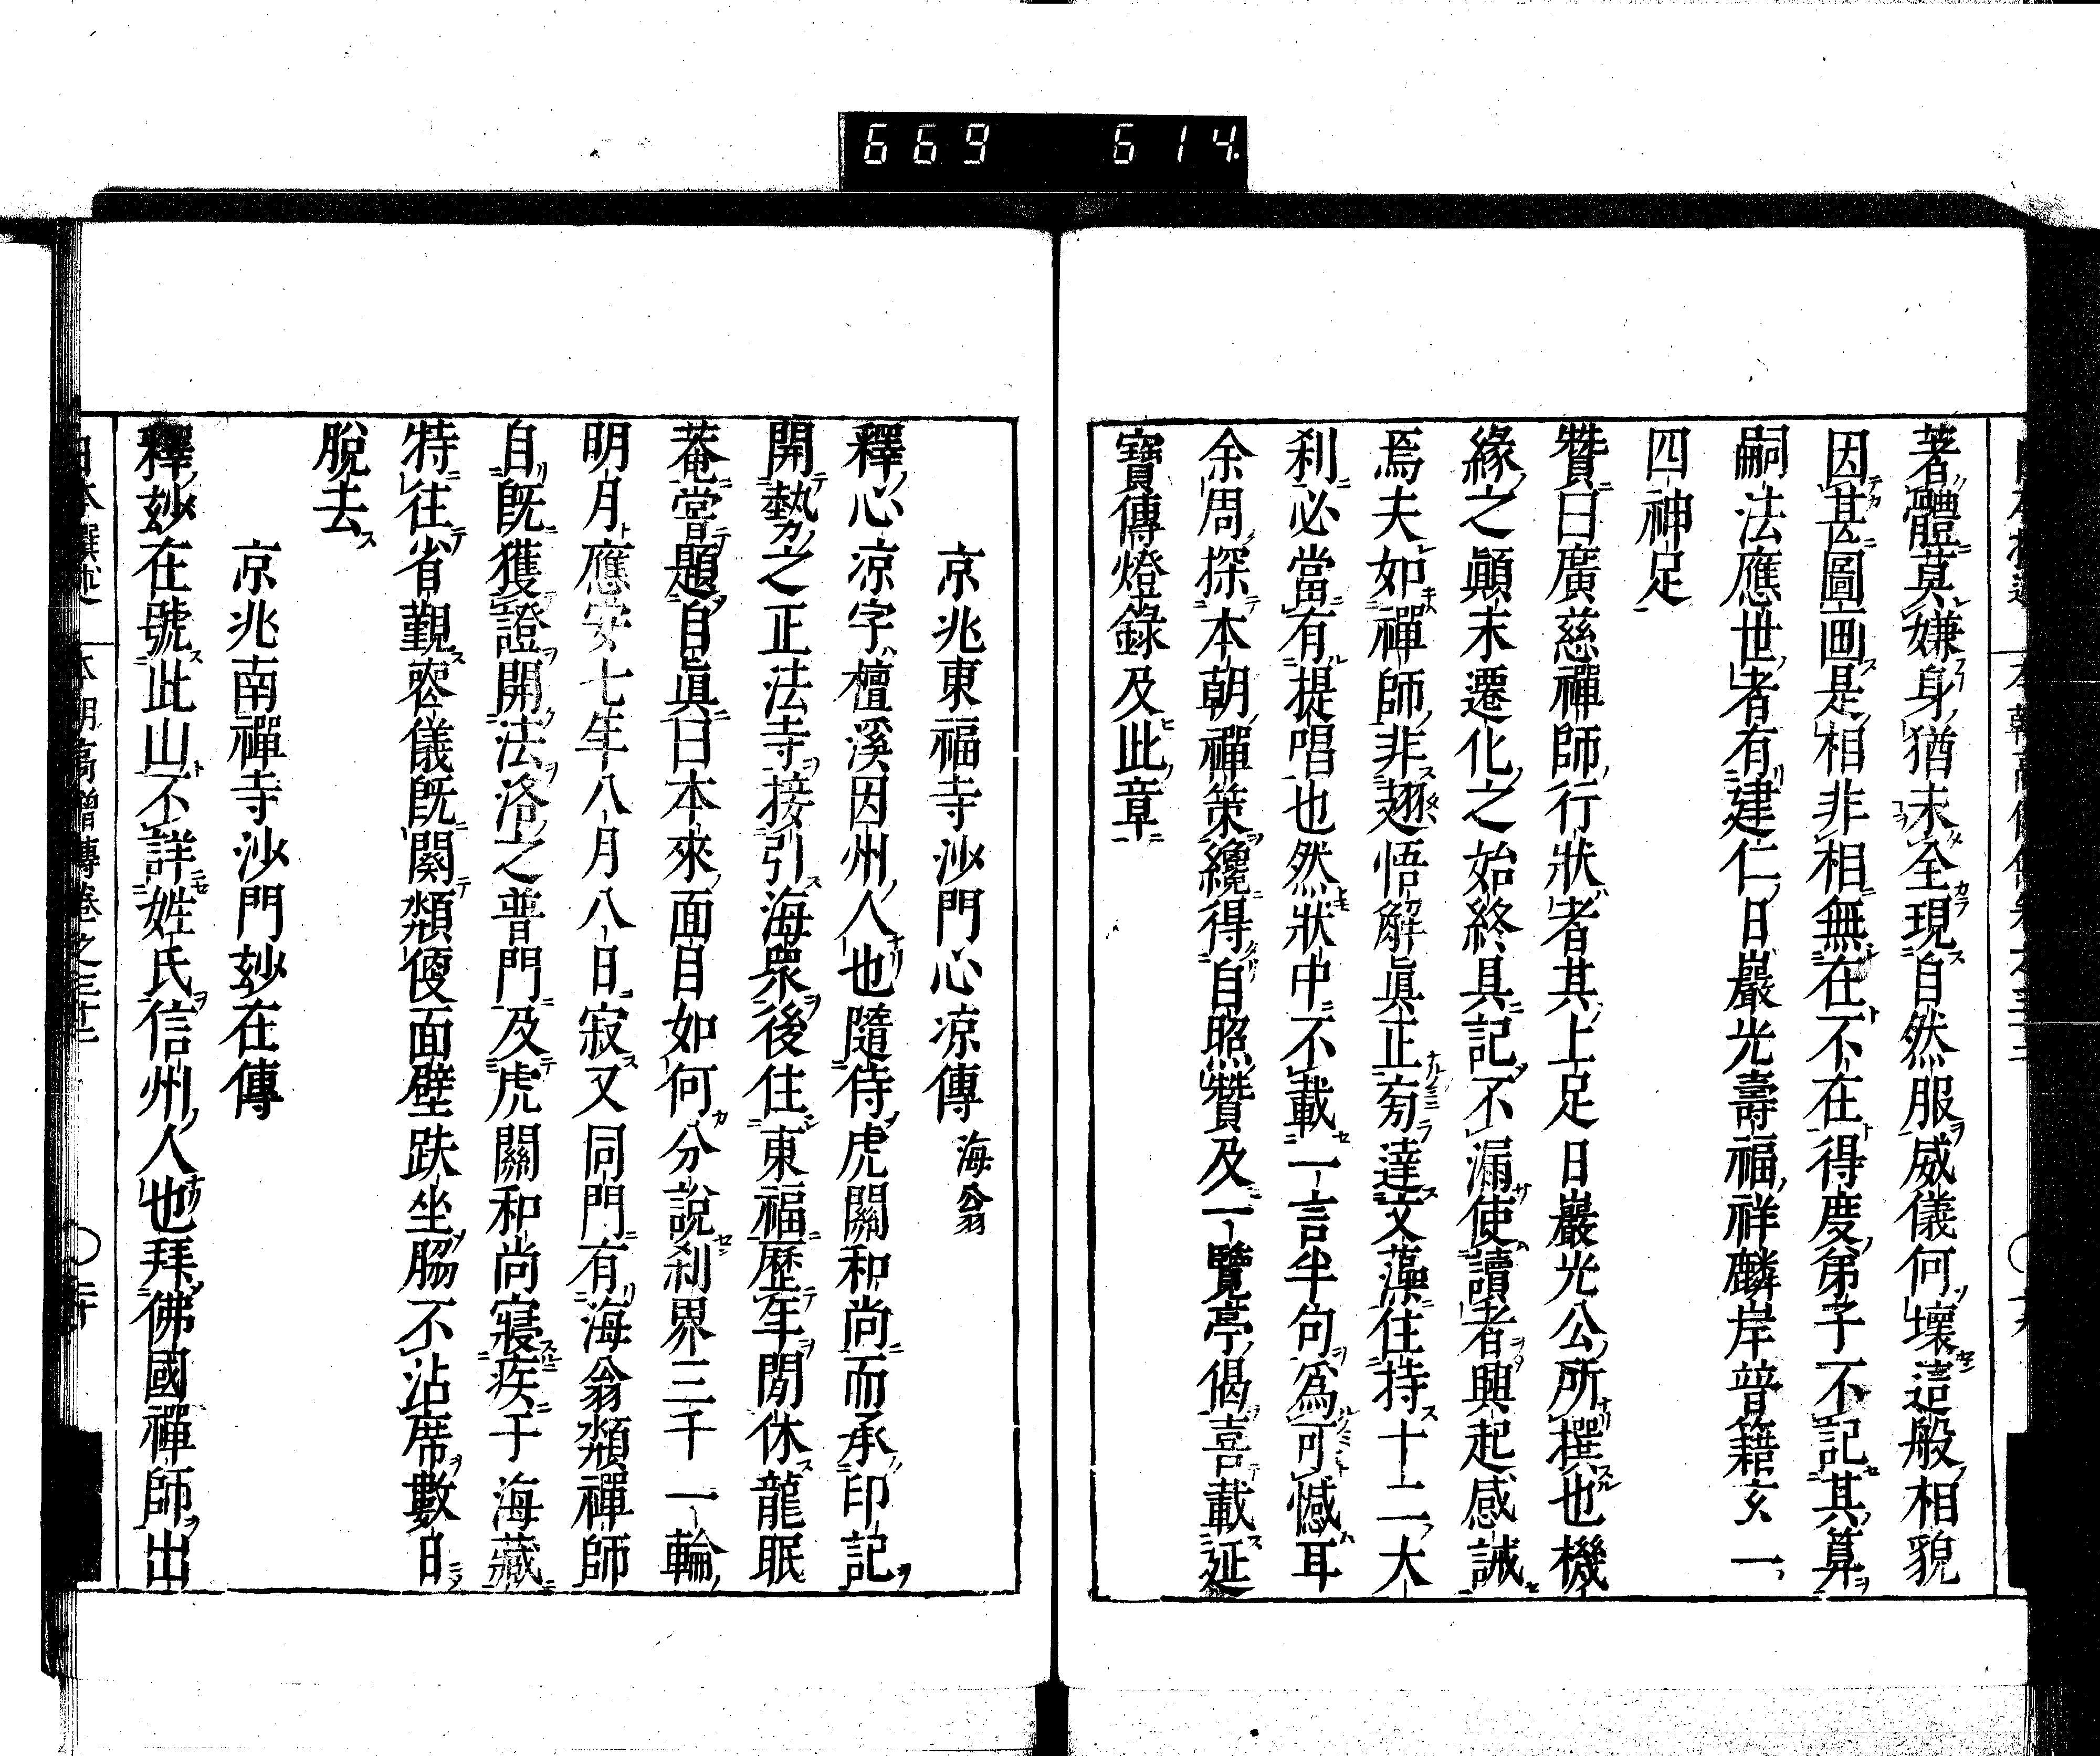 669 614.
著體莫嫌身猶未全現自然服威儀何壞這般相貌
因甚圖画是相非相無在不在得度弟子不記其算
嗣法應世者有建仁日巖光壽福祥麟岸普籍玄一
四神足
贊曰廣慈禪師行狀者其上足日巖光公所撰也機
緣之顚末遷化之始終具記不漏使讀者興起感誠
焉夫如禪師非翅悟解眞正旁達文藻住持十二大
刹必當有提唱也然狀中不載一言半句爲可憾耳
余周探本朝禪策纔得自照贊及一覽亭偈喜載延
寶傳燈錄及此章
京兆東福寺沙門心凉傳 海翁
釋心凉字檀溪因州人也隨侍虎關和尚而承印記
開勢之正法寺接引海衆後住東福歷年閒休龍眠
菴甞題自眞曰本來面目如何分說刹界三千一輪
明月應安七年八月八日寂又同門有海翁纇禪師
自既獲證開法洛之普門及虎關和尚寢疾于海藏
特往省覲容儀既闋纇便面壁趺坐脇不沾席數日
脫去
京兆南禪寺沙門玅在傳
釋玅在號此山不詳姓氏信州人也拜佛國禪師出
日本撰述 本朝高僧傳卷之三十三 二十